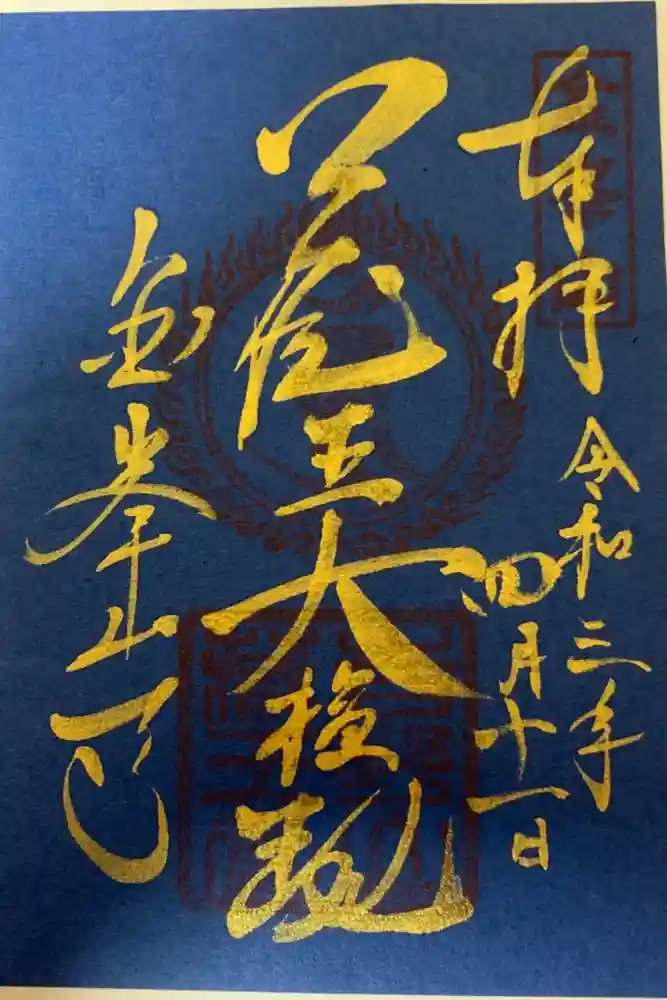 奉拝
令和三年
四月十一日
蔵王大権現
金峯山寺